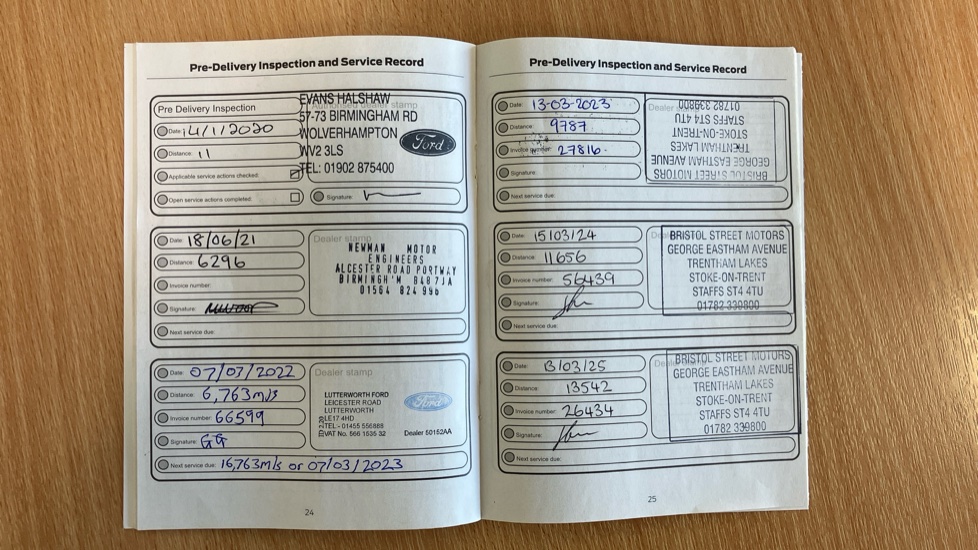 Pre-Delivery Inspection and Service Record
Pre Delivery Inspection
Date: 14/1/2020
Distance: 11
Applicable service actions checked:
Open service actions completed:
Authorised dealer stamp
EVANS HALSHAW
57-73 BIRMINGHAM RD
WOLVERHAMPTON
WV2 3LS
TEL: 01902 875400
Ford
Signature:
Date: 18/06/21
Distance: 6296
Invoice number:
Signature:
Next service due:
Dealer stamp
NEWMAN MOTOR
ENGINEERS
ALCESTER ROAD PORTWAY
BIRMINGH'M B48 7JA
01564 824 996
Date: 07/07/2022
Distance: 6,763m/s
Invoice number: 66599
Signature: GG
Next service due: 16,763m/s or 07/03/2023
Dealer stamp
LUTTERWORTH FORD
LEICESTER ROAD
LUTTERWORTH
LE17 4HD
TEL - 01455 556888
VAT No. 566 1535 32
Dealer 50152AA
Ford
24
Pre-Delivery Inspection and Service Record
Date: 13-03-2023
Distance: 9787
Invoice number: 27816
Signature:
Next service due:
Dealer
BRISTOL STREET MOTORS
GEORGE EASTHAM AVENUE
TRENTHAM LAKES
STOKE-ON-TRENT
STAFFS ST4 4TU
01782 339800
Date: 15/03/24
Distance: 11656
Invoice number: 56439
Signature:
Next service due:
BRISTOL STREET MOTORS
GEORGE EASTHAM AVENUE
TRENTHAM LAKES
STOKE-ON-TRENT
STAFFS ST4 4TU
01782 339800
Date: 13/03/25
Distance: 13542
Invoice number: 26434
Signature:
Next service due:
BRISTOL STREET MOTORS
GEORGE EASTHAM AVENUE
TRENTHAM LAKES
STOKE-ON-TRENT
STAFFS ST4 4TU
01782 339800
25